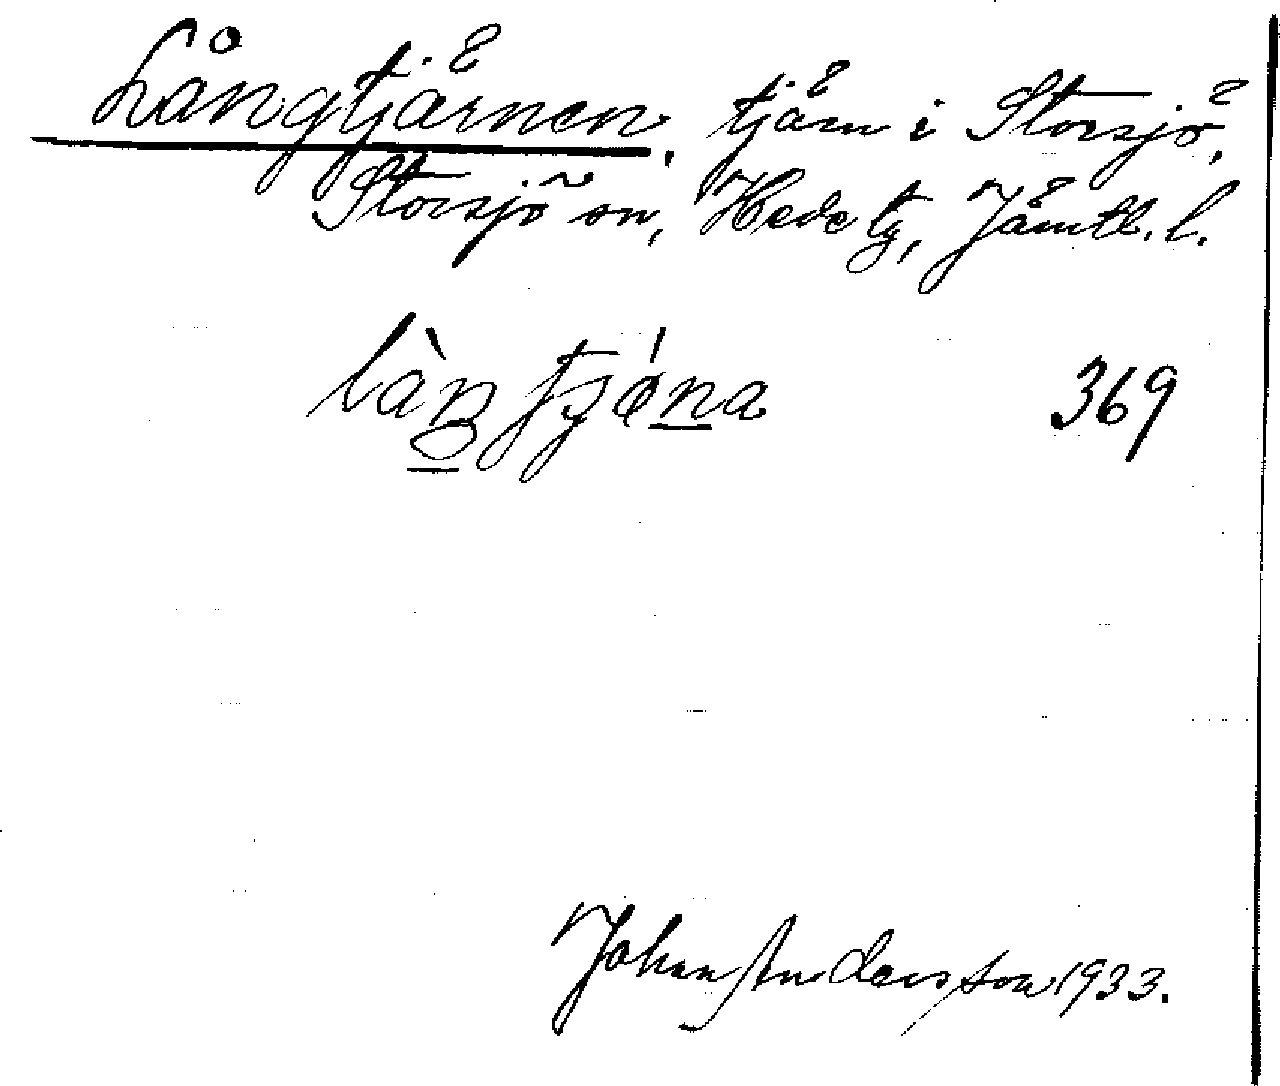 Långtjärnen, tjärn i Storsjö,
Storsjö sn, Hede tg, Jämtl. l.
làŋtjǿna 369
Johan Andersson 1933.